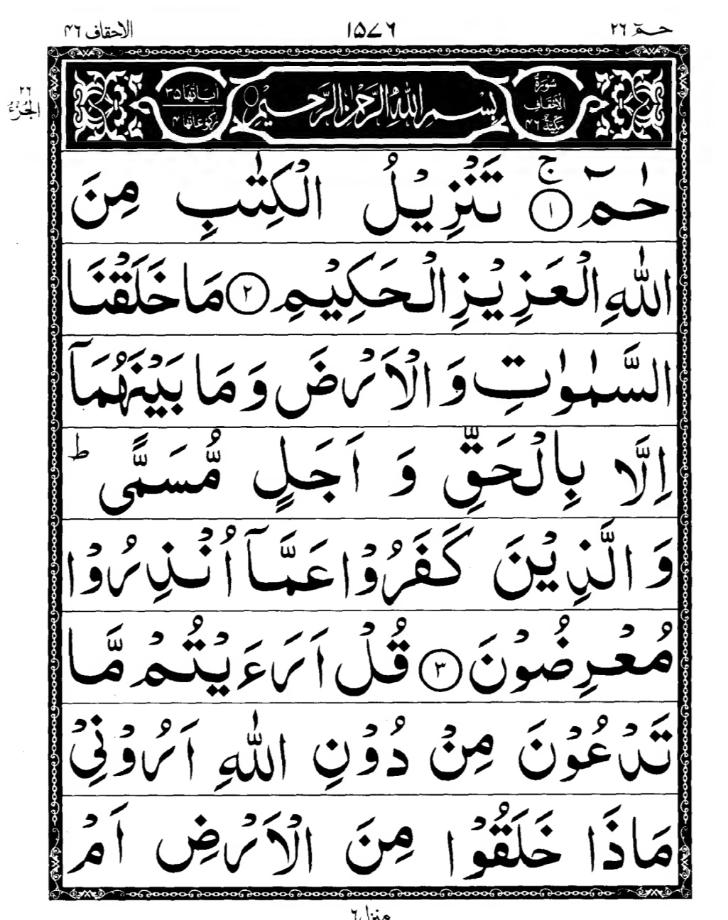 حٰمٓ ٢٦
١٥٧٦
الاحقاف ٤٦
٢٦
الجزء
سُوْرَةُ الْاَحْقَافِ مَكِّيَّةٌ ٤٦
بِسْمِ اللّٰهِ الرَّحْمٰنِ الرَّحِيْمِ
اٰيَاتُهَا ٣٥
رُكُوْعَاتُهَا ٤
حٰمٓ ۚ ﴿١﴾ تَنْزِيْلُ الْكِتٰبِ مِنَ
اللّٰهِ الْعَزِيْزِ الْحَكِيْمِ ﴿٢﴾ مَا خَلَقْنَا
السَّمٰوٰتِ وَ الْاَرْضَ وَ مَا بَيْنَهُمَاۤ
اِلَّا بِالْحَقِّ وَ اَجَلٍ مُّسَمًّى ؕ
وَ الَّذِيْنَ كَفَرُوْا عَمَّاۤ اُنْذِرُوْا
مُعْرِضُوْنَ ﴿٣﴾ قُلْ اَرَءَيْتُمْ مَّا
تَدْعُوْنَ مِنْ دُوْنِ اللّٰهِ اَرُوْنِيْ
مَاذَا خَلَقُوْا مِنَ الْاَرْضِ اَمْ
منزل ٦